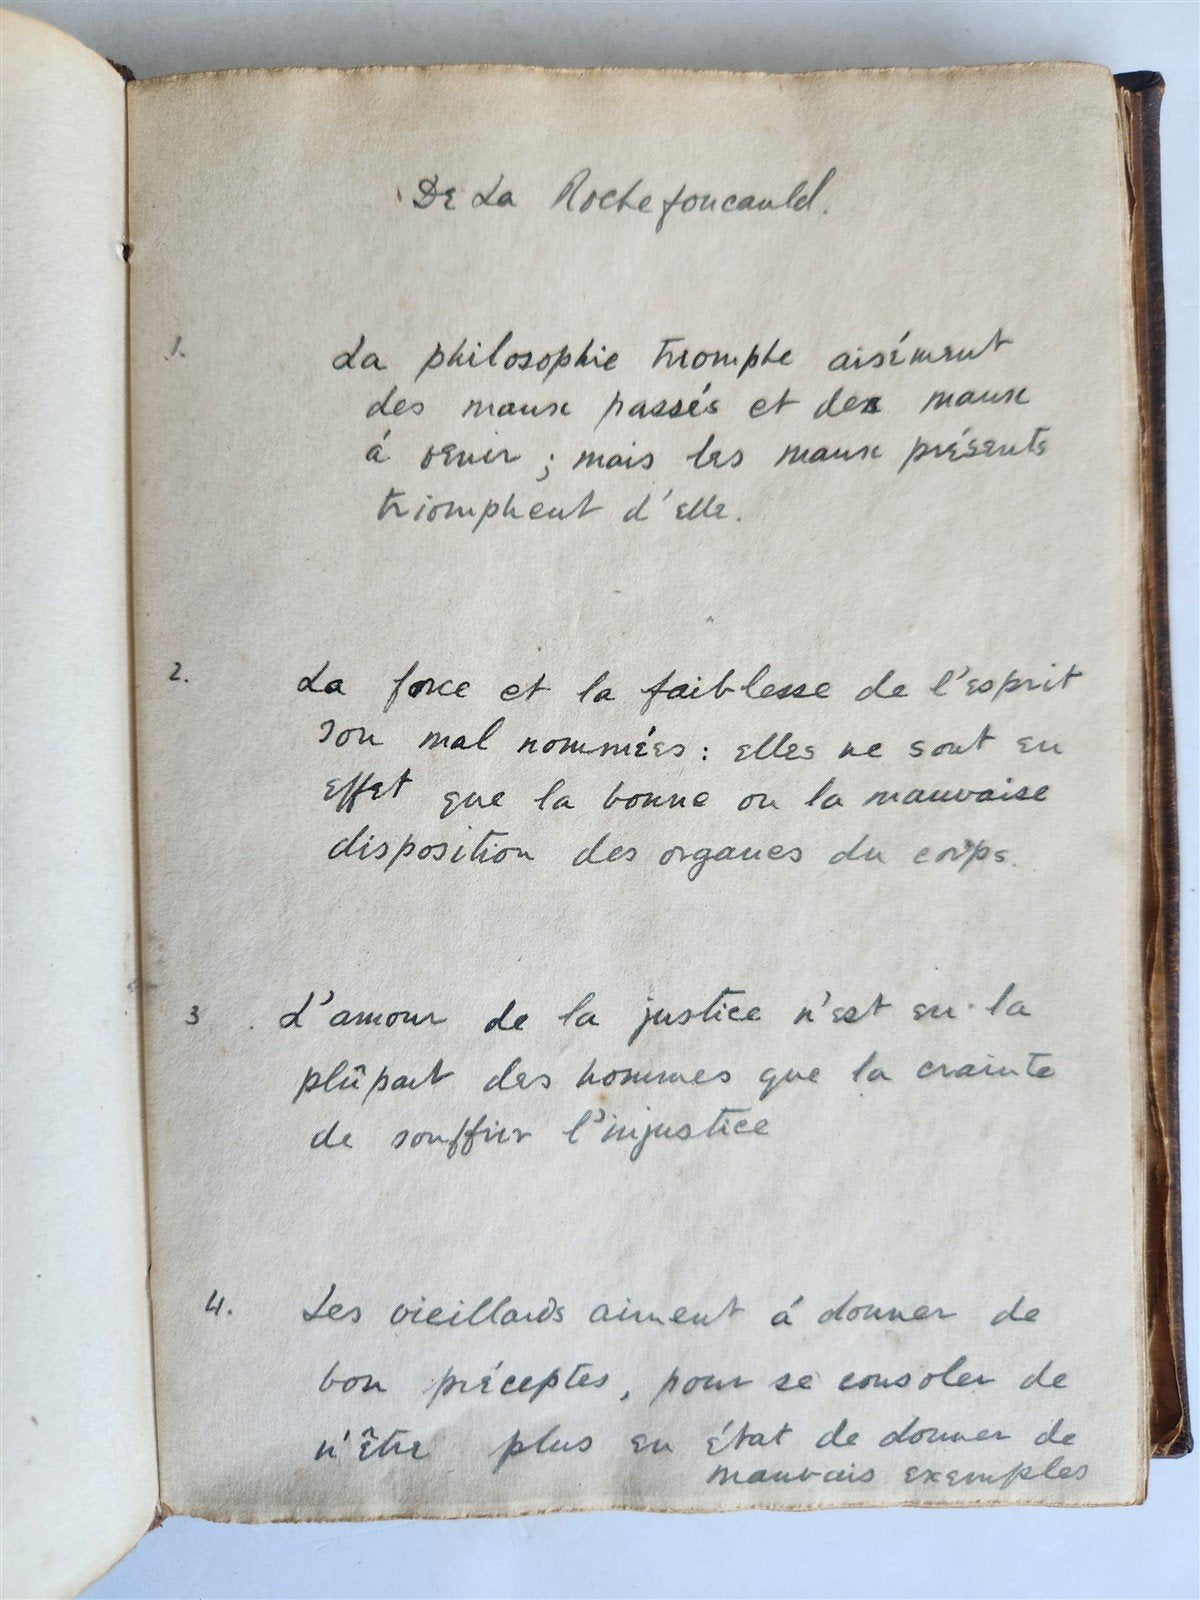 De La Rochefoucauld.
1. La philosophie triomphe aisément
des maux passés et des maux
á venir ; mais les maux présents
triomphent d'elle.
2. La force et la faiblesse de l'esprit
son mal nommées : elles ne sont en
effet que la bonne ou la mauvaise
disposition des organes du corps.
3 L'amour de la justice n'est en la
plûpart des hommes que la crainte
de souffrir l'injustice
4. Les vieillards aiment á donner de
bon préceptes, pour se consoler de
n'être plus en état de donner de
mauvais exemples